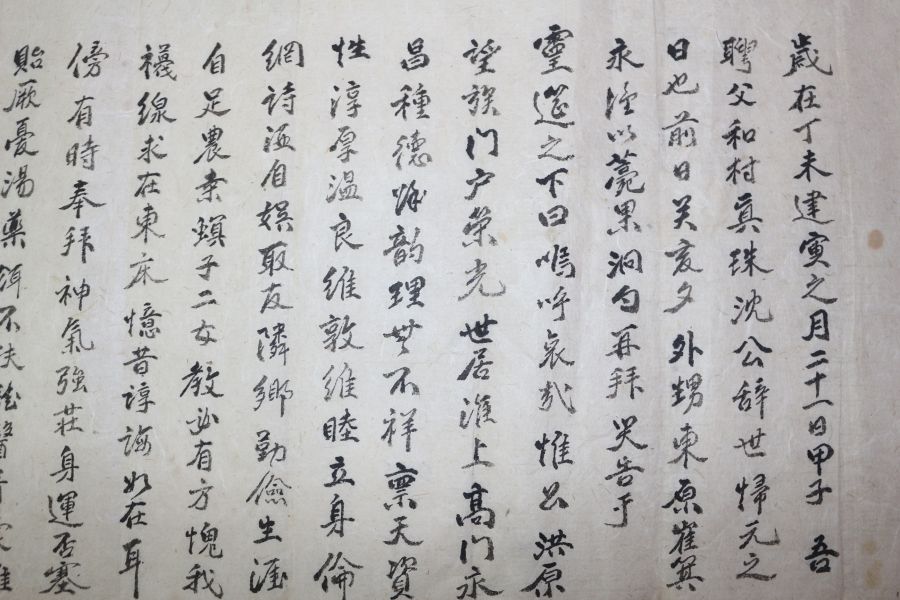 歲在丁未建寅之月二十一日甲子 吾
聘父和村眞珠沈公辞世帰元之
日也前日癸亥夕外甥東原崔箕
永謹以薨果泂勺再拜哭告于
靈筵之下曰嗚呼哀哉惟公洪原
望族门户榮光世居淮上高门永
昌種德餘韵理無不祥禀天資
性淳厚温良維敦維睦立身倫
網詩酒自娯取友隣鄉勤儉生涯
自足農桒螟子二女教必有方愧我
襪線求在東床憶昔諄誨如在耳
傍有時奉拜神氣強莊身運否塞
貽厥憂湯藥